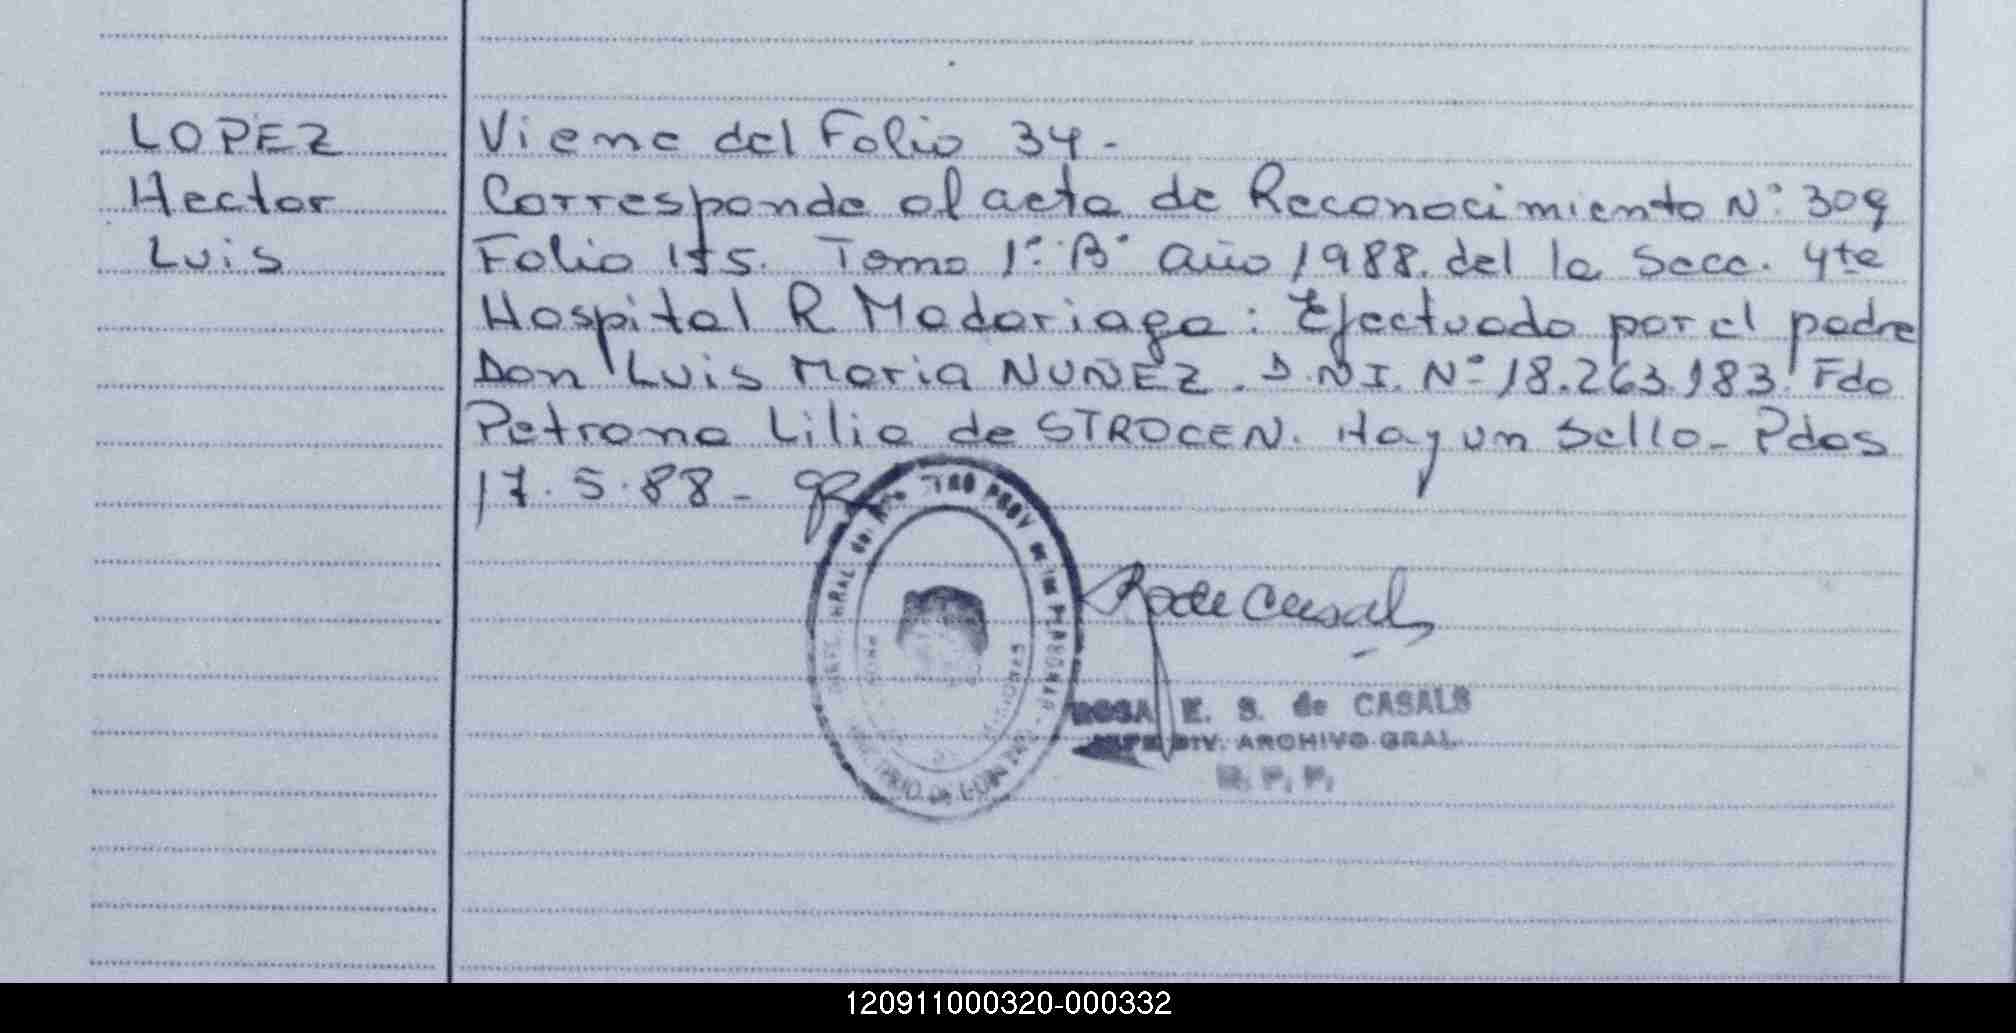 LOPEZ
Hector
Luis
Viene del Folio 34.-
Corresponde al acta de Reconocimiento Nº 309
Folio 175. Tomo 1º "B" año 1988. del la Secc. 4ta
Hospital R Madariaga: Efectuado por el padre
Don Luis Maria NUÑEZ. D.N.I. Nº 18.263.183. Fdo
Petrona Lilia de STROCEN. Hay un Sello- Pdas
17.5.88-
ROSA E. S. de CASALS
JEFE DIV. ARCHIVO GRAL.
R. P. P.
120911000320-000332